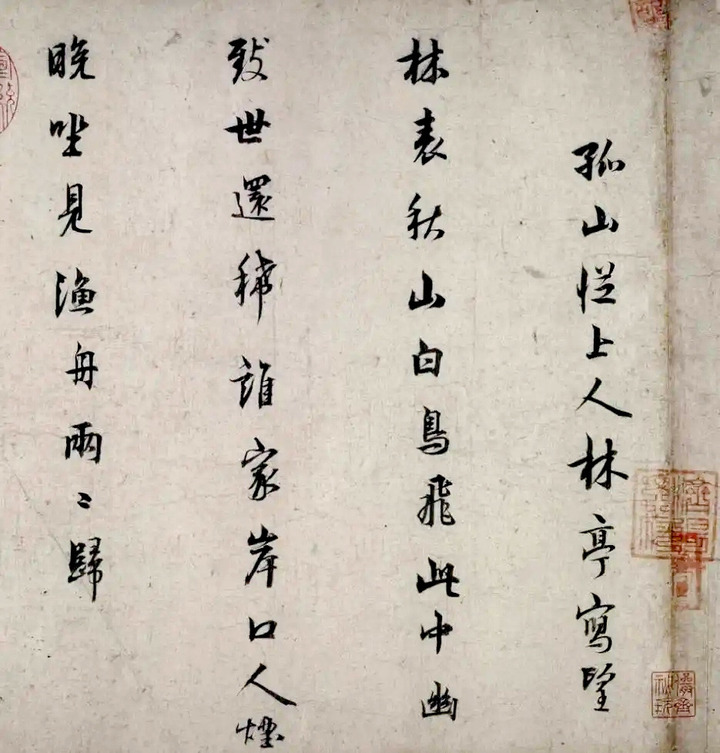 孤山從上人林亭寫望
林表秋山白鳥飛此中幽
致世還稀誰家岸口人煙
晚坐見漁舟兩〻歸